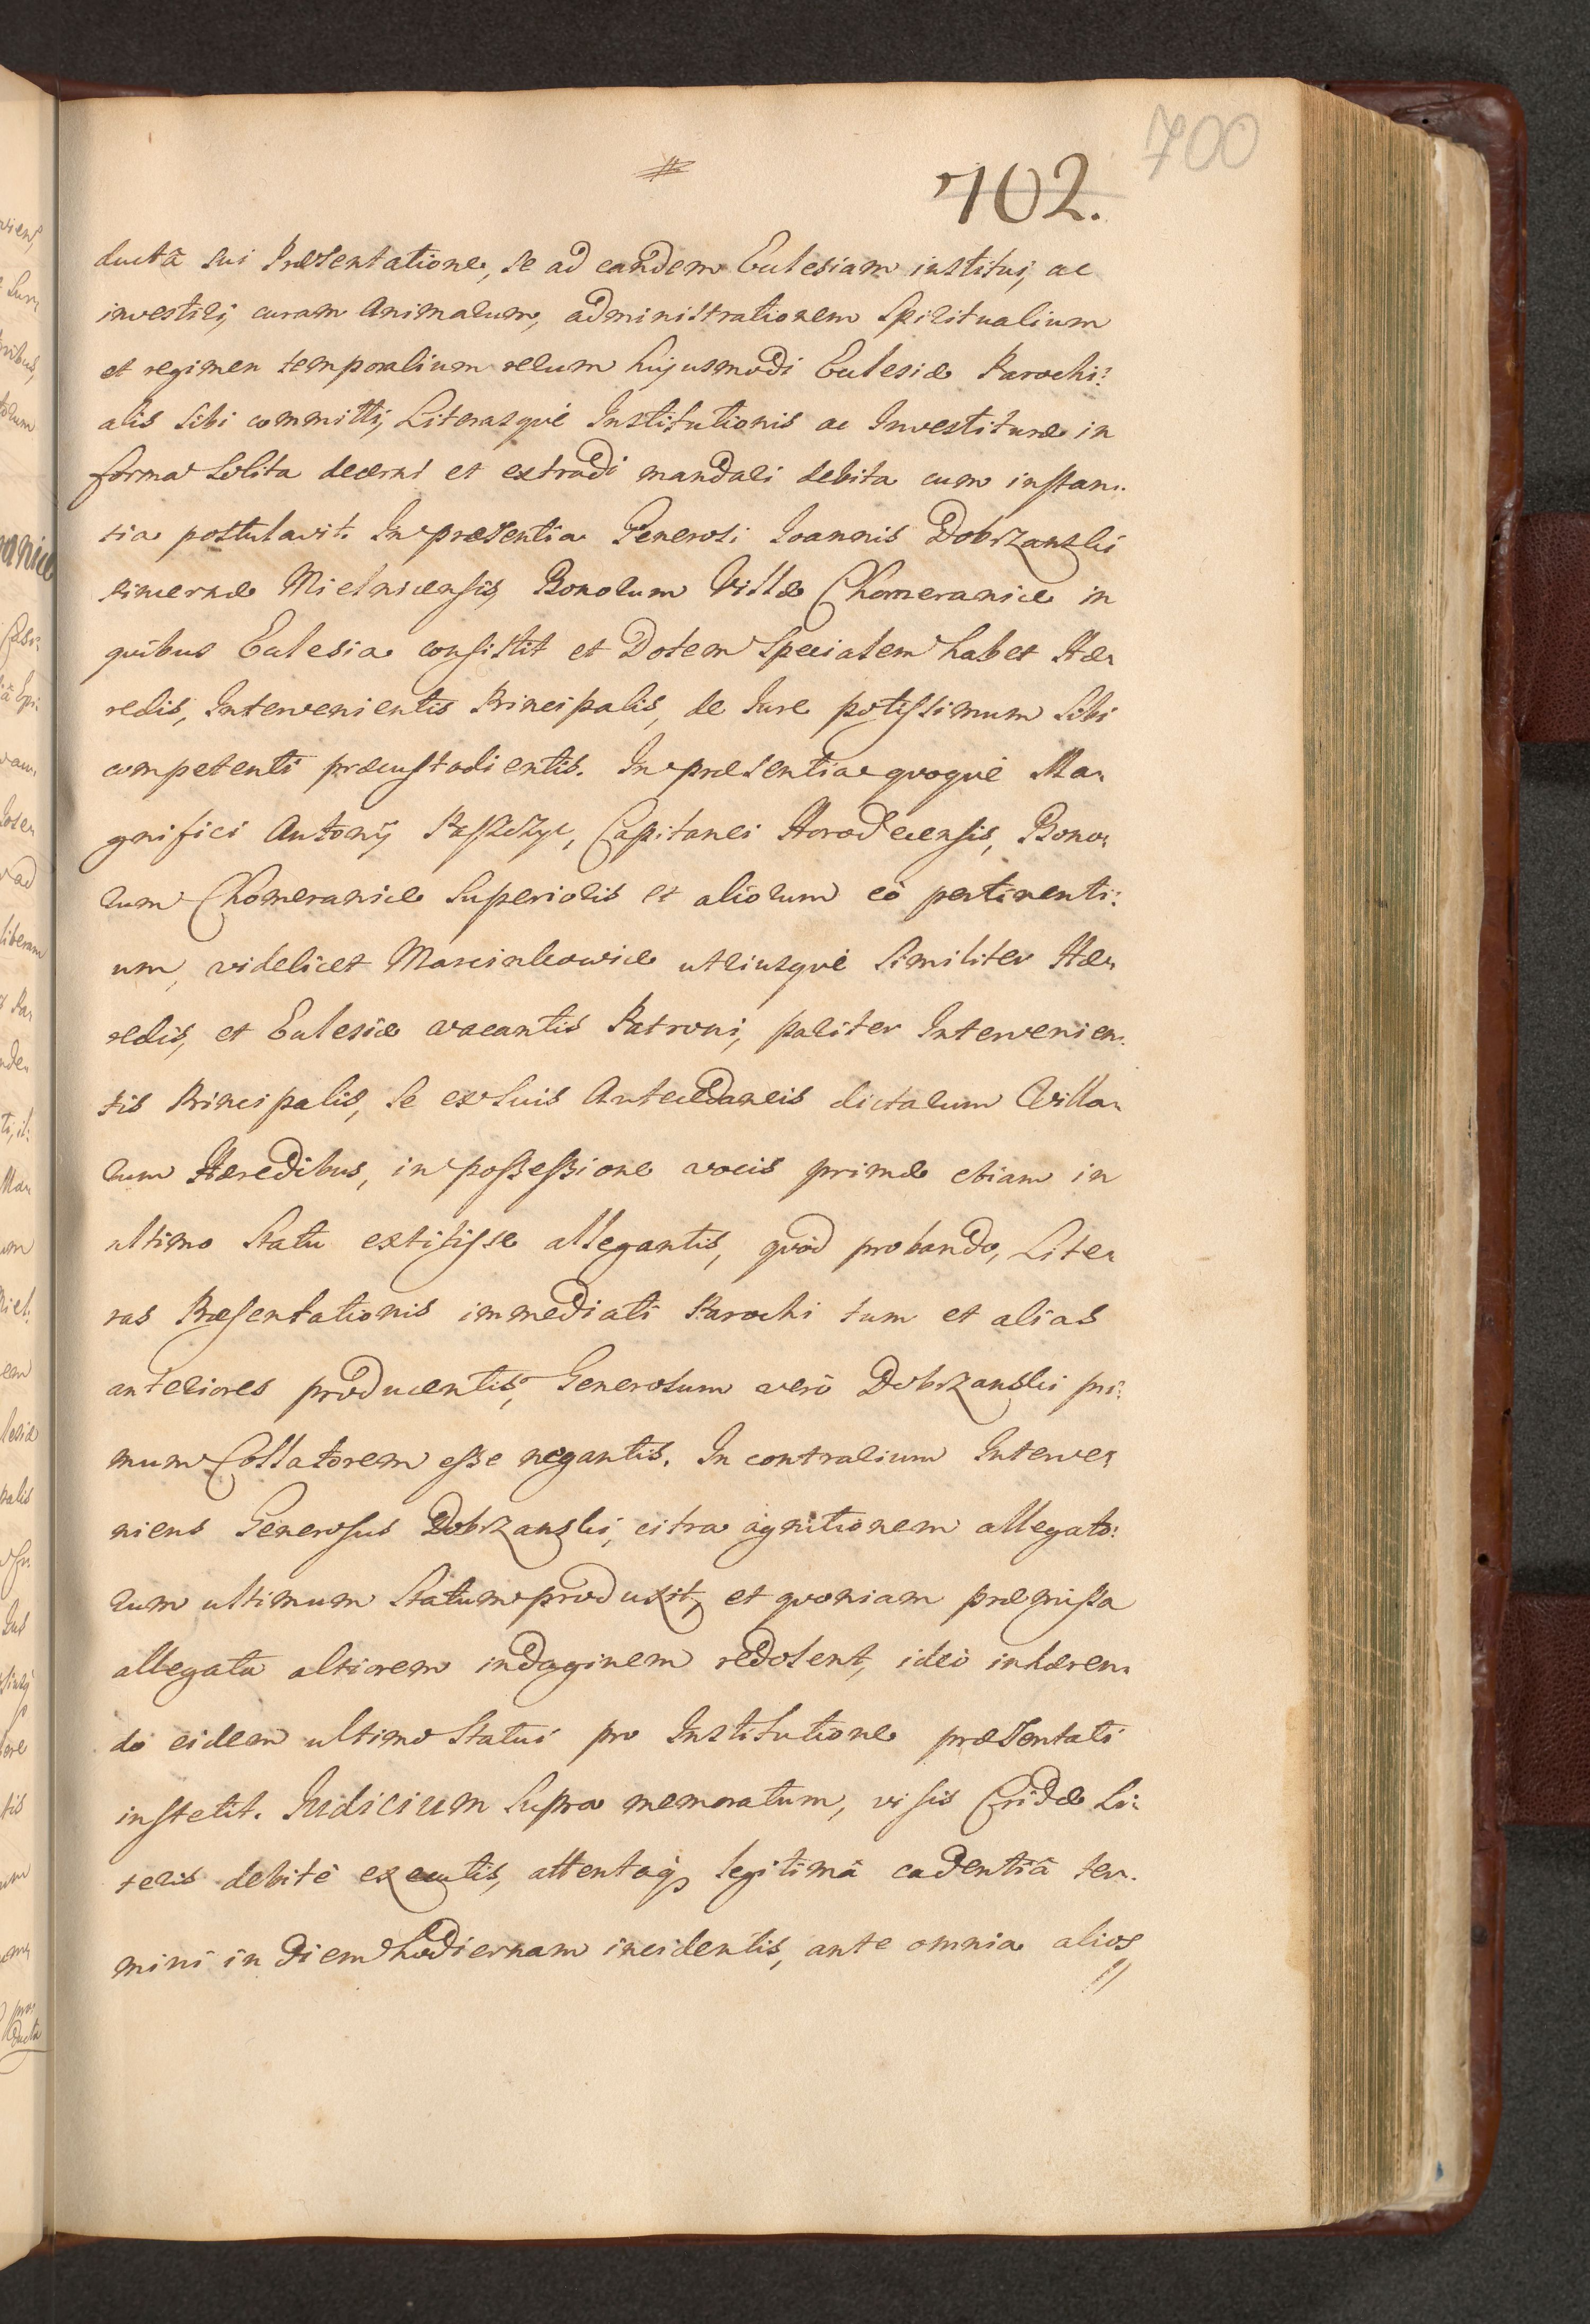 700
702.
ductâ sui Præsentatione, se ad eandem Ecclesiam institui, ac
investiri, curam Animarum, administrationem Spiritualium
et regimen temporalium rerum hujusmodi Ecclesiæ Parochi:
alis sibi committi, Literasquè Institutionis ac Investituræ in
forma Solita decerni et extradi mandari debita cum instan:
tia postulavit. In præsentia Generosi Joannis Dobrzanski
Pincernæ Mielnicensis, Bonorum Villæ Chomeranice in
quibus Ecclesia consistit et Dotem Specialem habet Hæ:
redis, Intervenientis Principalis, de Jure potissimum Sibi
competenti præcustodientis. In præsentia quoquè Ma:
gnifici Antonij Capitanei Horodecensis, Bono:
rum Chomeranice Superioris et aliorum eò pertinenti:
um, videlicet Marcinkowice utriusquè Similiter Hæ:
redis, et Ecclesiæ vacantis Patroni, pariter Intervenien:
tis Principalis, Se ex Suis Antecedaneis dictarum Villa:
rum Hæredibus, in possessione vocis primæ etiam in
ultimo Statu extitisse allegantis, quòd probando, Lite:
ras Præsentationis immediati Parochi tum et alias
anteriores producentis, Generosum verò Dobrzanski pri:
mum Collatorem esse negantis. In contrarium Interve:
niens Generosus Dobrzanski, citra agnitionem allegato:
rum ultimum Statum produxit, et quoniam præmissa
allegata altiorem indaginem redolent, ideò inhæren:
do eidem ultimo Statui pro Institutione præsentati
institit. Judicium Supra memoratum, visis Cridæ Li:
teris debitè executis, attentaq; legitimâ cadentiâ ter:
mini in diem hodiernam incidentis, ante omnia alios